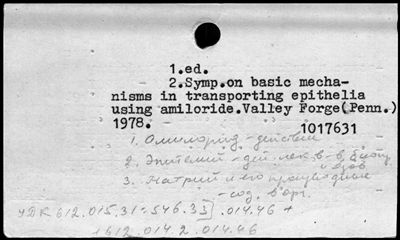 1.ed.
2.Symp.on basic mecha-
nisms in transporting epithelia
using amiloride.Valley Forge(Penn.)
1978.
1017631
1. Амилорид - действие
2. Эпителий - дей. лек. в-в, биол.
3. Натрий и его
- сод. в орг.
УДК 612.015.31:546.33].014.46 +
+612.014.2.014.46